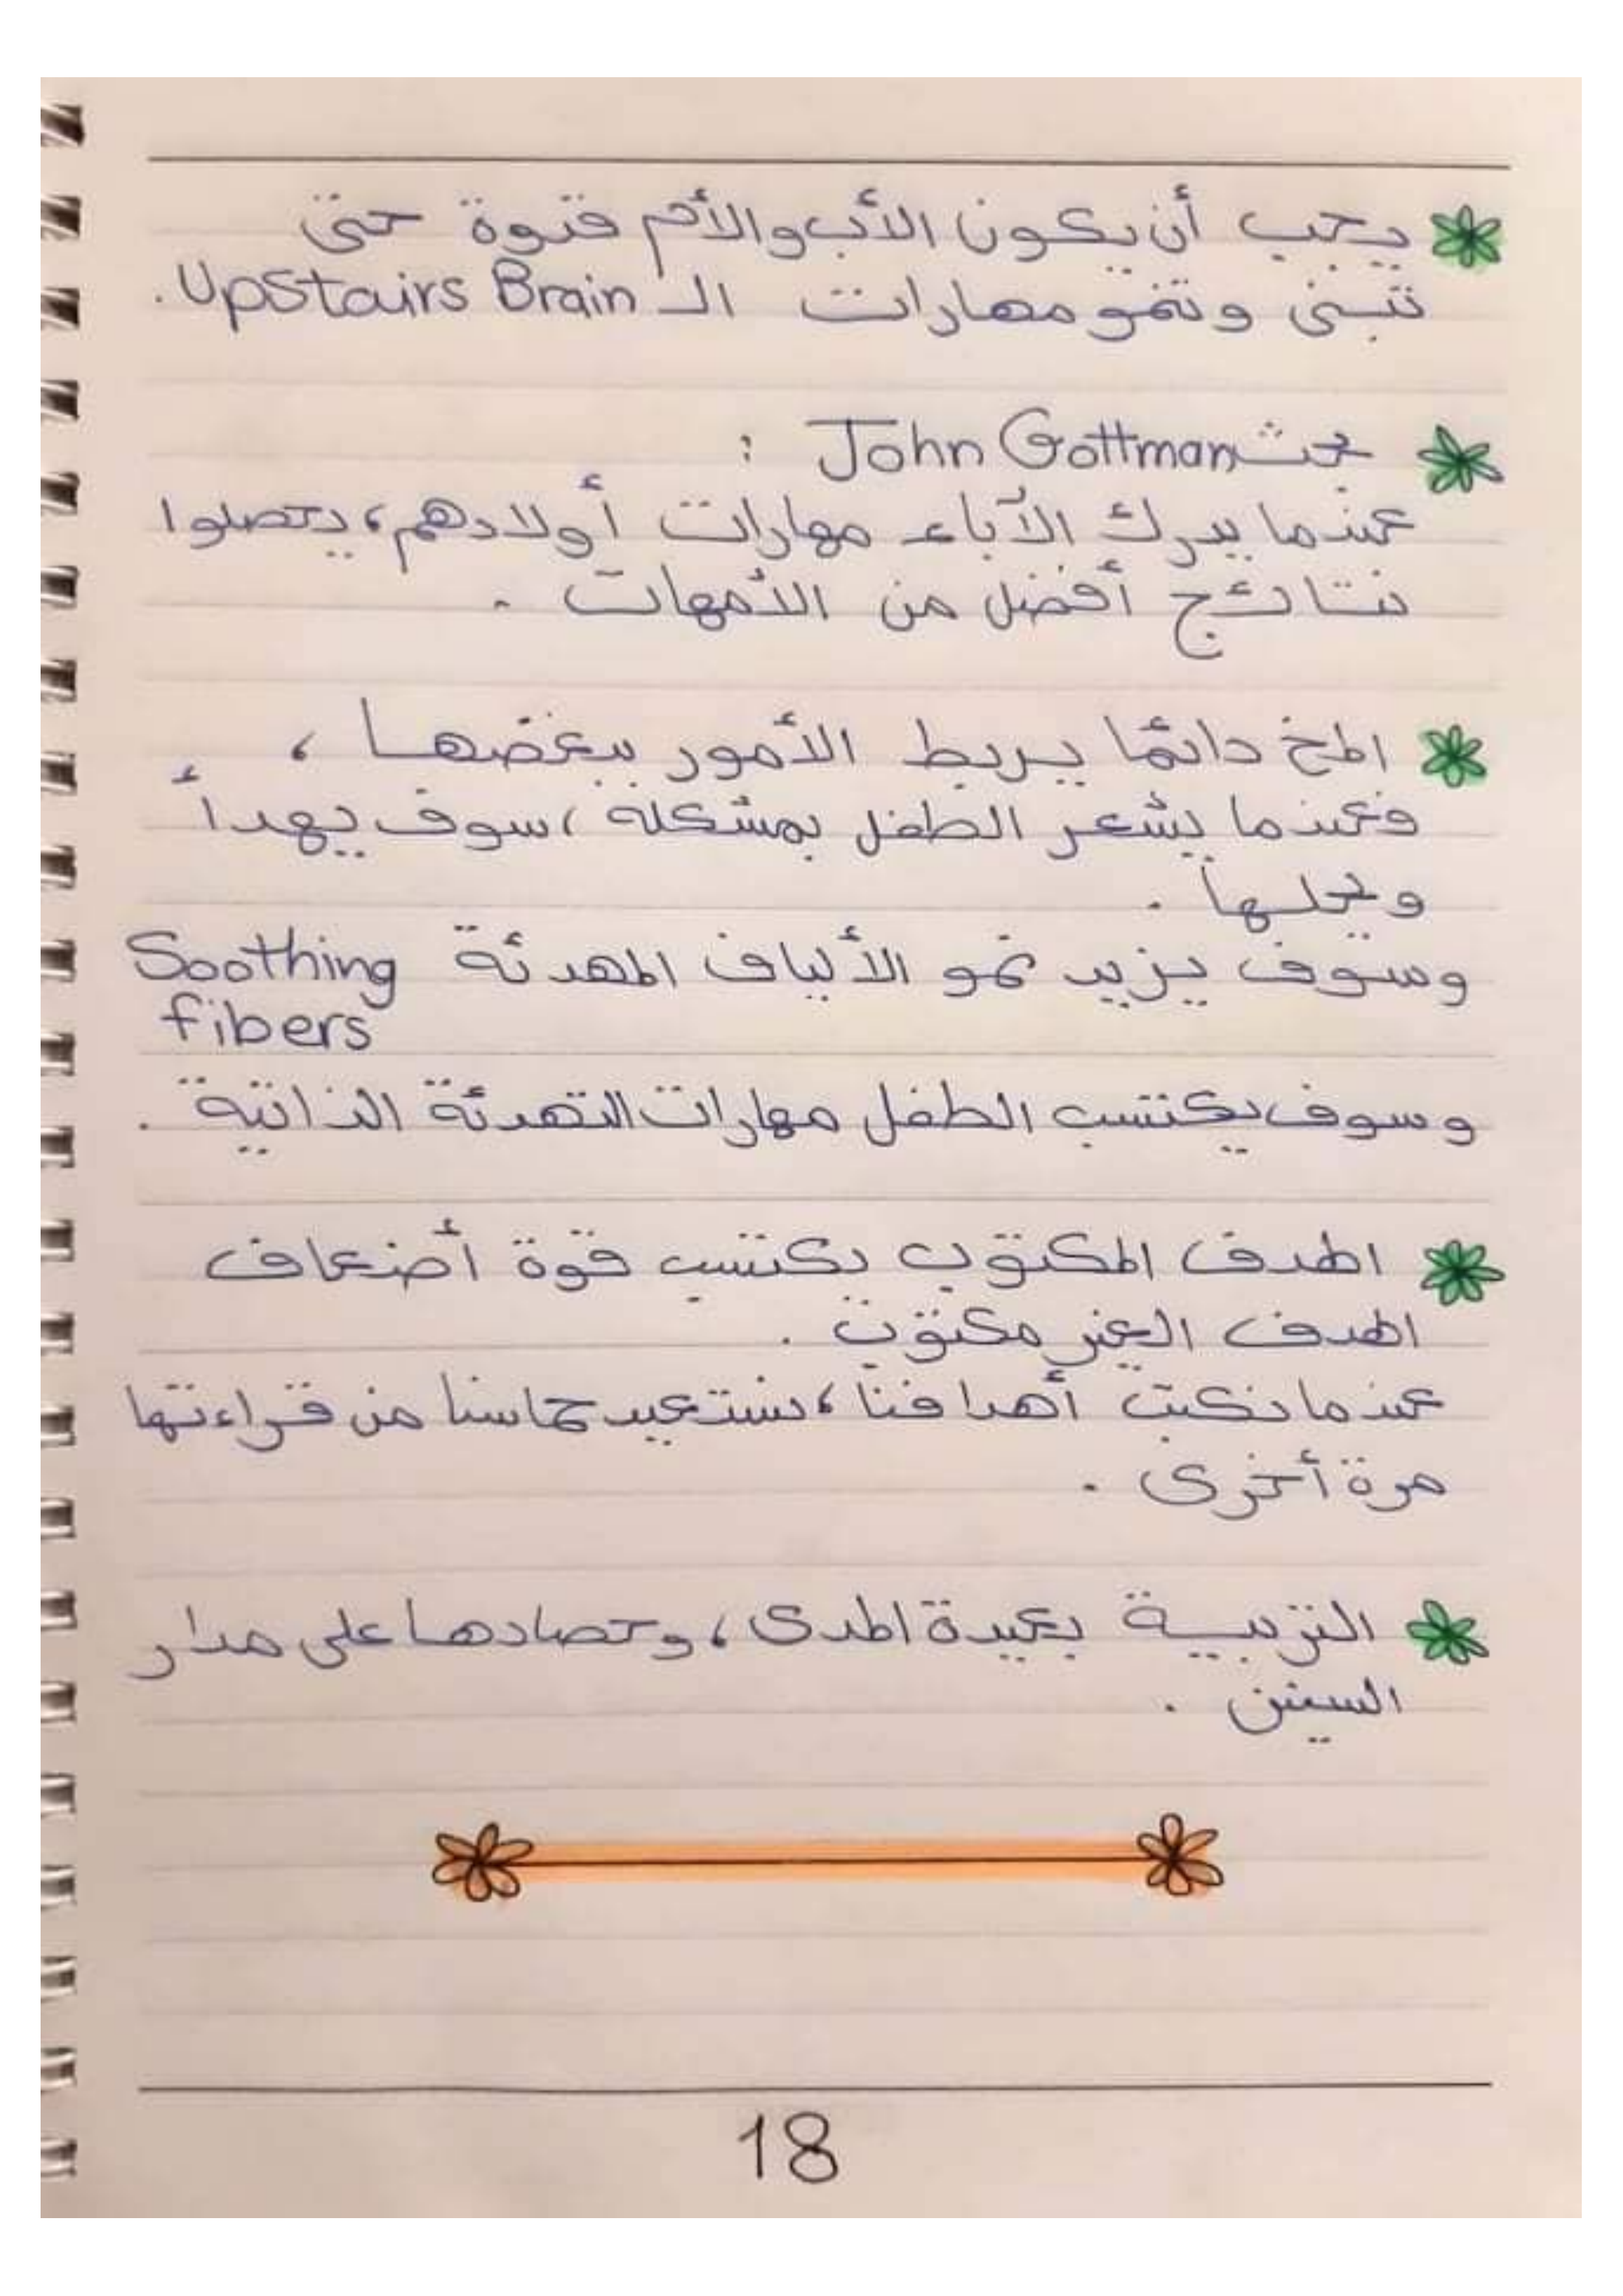 يجب أن يكون الأب والأم قدوة حتى
تتبنى وتنمو مهارات الـ Upstairs Brain.
بحث John Gottman :
عندما يدرك الآباء مهارات أولادهم، يحصلوا
نتائج أفضل من الأمهات .
المخ دائمًا يربط الأمور ببعضها ،
فعندما يشعر الطفل بمشكلة ، سوف يهدأ
ويحلها .
وسوف يزيد نمو الألياف المهدئة Soothing
fibers
وسوف يكتسب الطفل مهارات التهدئة الذاتية .
الهدف المكتوب يكتسب قوة أضعاف
الهدف الغير مكتوب .
عندما نكتب أهدافنا ، نستعيد حماسنا من قراءتها
مرة أخرى .
التربية بعيدة المدى ، وحصادها على مدار
السنين .
18